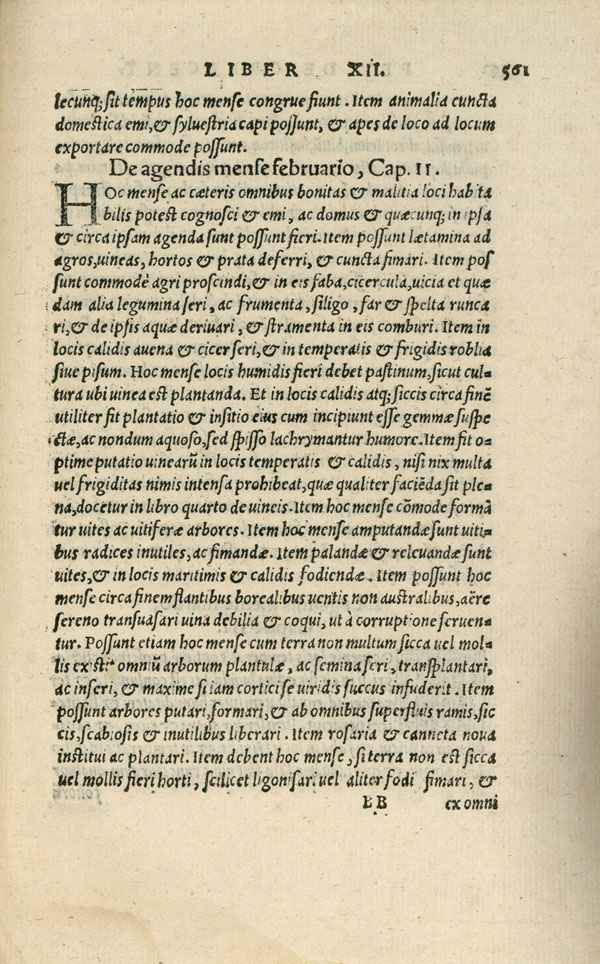 LIBER XII. 561
lecunq; sit tempus hoc mense congrue fiunt. Item animalia cuncta
domestica emi, & syluestria capi possunt, & apes de loco ad locum
exportare commode possunt.
De agendis mense februario, Cap. II.
HOc mense ac cæteris omnibus bonitas & malitia loci habita
bilis potest cognosci & emi, ac domus & quæcunq; in ipsa
& circa ipsam agenda sunt possunt fieri. Item possunt lætamina ad
agros, uineas, hortos & prata deferri, & cuncta fimari. Item pos
sunt commodè agri proscindi, & in eis faba, cicercula, uicia et quæ
dam alia legumina seri, ac frumenta, siligo, far & spelta runca
ri, & de ipsis aquæ deriuari, & stramenta in eis comburi. Item in
locis calidis auena & cicer seri, & in temperatis & frigidis robilia
siue pisum. Hoc mense locis humidis fieri debet pastinum, sicut cul-
tura ubi uinea est plantanda. Et in locis calidis atq; siccis circa finē
utiliter fit plantatio & insitio eius cum incipiunt esse gemmæ suspe
ctæ, ac nondum aquoso, sed spisso lachrymantur humore. Item fit o-
ptime putatio uinearū in locis temperatis & calidis, nisi nix multa
uel frigiditas nimis intensa prohibeat, quæ qualiter faciēda sit ple-
na, docetur in libro quarto de uineis. Item hoc mense cōmode formā
tur uites ac uitiferæ arbores. Item hoc mense amputandæ sunt uiti-
bus radices inutiles, ac fimandæ. Item palandæ & releuandæ sunt
uites, & in locis maritimis & calidis fodiendæ. Item possunt hoc
mense circa finem flantibus borealibus uentis non australibus, aëre
sereno transuasari uina debilia & coqui, ut à corruptione seruen-
tur. Possunt etiam hoc mense cum terra non multum sicca uel mol-
lis existit omniū arborum plantulæ, ac semina seri, transplantari,
ac inseri, & maxime si iam cortici se uiridis succus infuderit. Item
possunt arbores putari, formari, & ab omnibus superfluis ramis, sic
cis, scabiosis & inutilibus liberari. Item rosaria & canneta noua
institui ac plantari. Item debent hoc mense, si terra non est sicca
uel mollis fieri horti, scilicet ligonisari uel aliter fodi fimari, &
BB ex omni